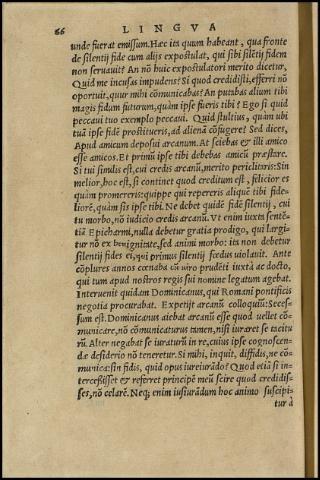 66 LINGVA
unde fuerat emissum. Hæc ita quum habeant, qua fronte
de silentij fide cum alijs expostulat, qui sibi silẽtij fidem
non seruauit? An nõ huic expostulatori merito dicetur,
Quid me incusas impudens? Si quod credidisti, efferri nõ
oportuit, quur mihi cõmunicabas? An putabas alium tibi
magis fidum futurum, quàm ipse fueris tibi? Ego si quid
peccaui tuo exemplo peccaui. Quid stultius, quàm ubi
tuã ipse fidẽ prostitueris, ad alienã cõfugere? Sed dices,
Apud amicum deposui arcanum. At sciebas & illi amico
esse amicos. Et primũ ipse tibi debebas amicũ præstare.
Si tui similis est, cui credis arcanũ, merito periclitaris: Sin
melior, hoc est, si continet quod creditum est, felicior es
quàm promereris: quippe qui repereris aliquẽ tibi fide-
liorẽ, quàm sis ipse tibi. Ne debet quidẽ fidẽ silentij, cui
tu morbo, nõ iudicio credis arcanũ. Vt enim iuxta sentẽ-
tiã Epicharmi, nulla debetur gratia prodigo, qui largi-
tur nõ ex benignitate, sed animi morbo: ita non debetur
silentij fides ei, qui primus silentij fœdus uiolauit. Ante
cõplures annos cœnaba cũ uiro prudẽti iuxtà ac docto,
qui tum apud nostros regis sui nomine legatum agebat.
Interuenit quidam Dominicanus, qui Romani pontificis
negotia procurabat. Expetijt arcanũ colloquiũ: Seces-
sum est. Dominicanus aiebat arcanũ esse quod uellet cõ-
municare, nõ cõmunicaturus tamen, nisi iuraret se tacitu
rũ. Alter negabat se iuraturũ in re, cuius ipse cognoscen-
dæ desiderio nõ teneretur. Si mihi, inquit, diffidis, ne cõ-
munica: sin fidis, quid opus iureiurãdo? Quod etiã si in-
tercessisset & referret principẽ meũ scire quod credidis-
ses, nõ celarẽ. Neq; enim iusiurãdum hoc animo suscipi-
tur à